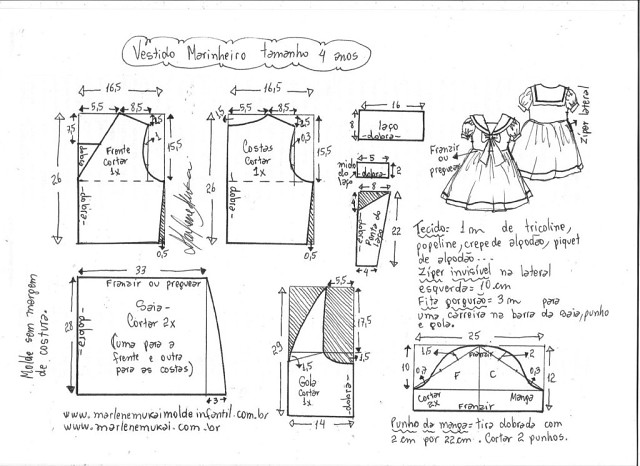 Vestido Marinheiro tamanho 4 anos
16,5
5,5
8,5
7,5
1,5
1
15,5
26
dobra
Frente
Cortar
1x
dobra
0,5
16,5
5,5
8,5
1,5
0,3
15,5
26
Costas
Cortar
1x
dobra
0,5
16
8
laço
-dobra-
5
miolo
do
laço
-dobra-
2
8
dobra
Ponta do
laço
22
4
Franzir
ou
preguear
Ziper lateral
Tecido: 1m de tricoline,
popeline, crepe de algodão, piquet
de algodão...
Zíper invisível na lateral
esquerda = 10 cm
Fita gorgurão = 3m para
uma carreira na barra da saia, punho
e gola.
33
Franzir ou preguear
28
dobra
Saia-
Cortar 2x
(uma para a
frente e outra
para as costas)
3
Molde sem margem
de costura.
5,5
17,5
29
1,5
1,5
Gola
Cortar
1x
dobra
14
25
1,5
Franzir
2
10
0,7
F
C
0,3
12
Cortar
2x
Manga
Franzir
www.marlenemukaimoldeinfantil.com.br
www.marlenemukai.com.br
Punho da manga = tira dobrada com
2 cm por 22cm. Cortar 2 punhos.